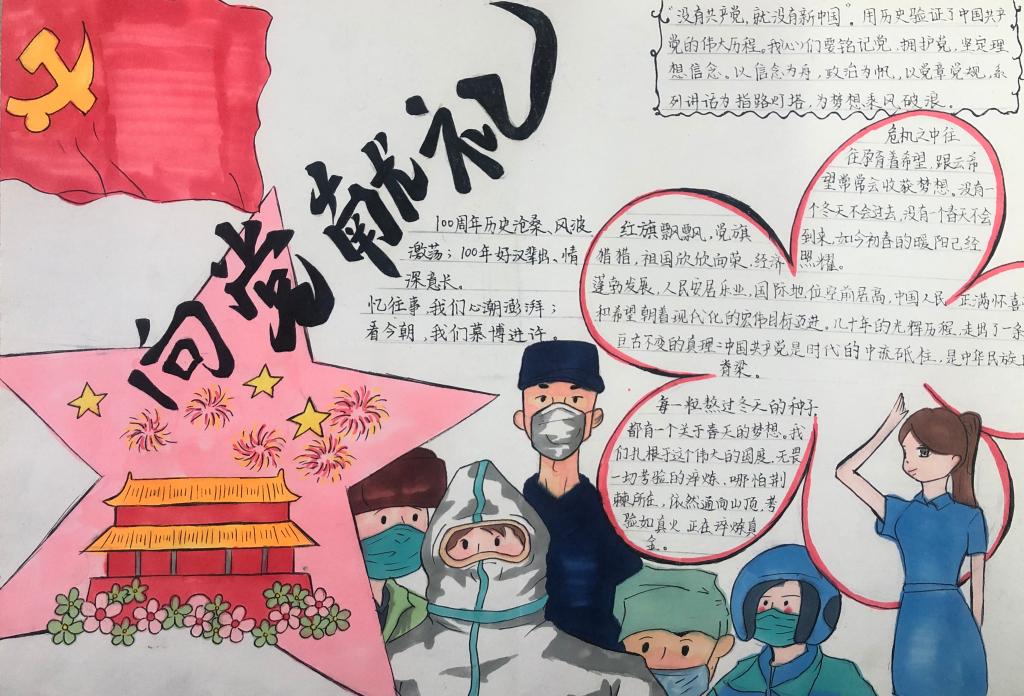 向党献礼
"没有共产党，就没有新中国"。用历史验证了中国共产
党的伟大历程。我心们要铭记党，拥护党，坚定理
想信念。以信念为舟，政治为帆，以党章党规，系
列讲话为指路灯塔，为梦想乘风破浪。
100周年历史沧桑、风波
激荡；100年好汉辈出、情
深意长。
忆往事，我们心潮澎湃；
看今朝，我们慕博进许。
危机之中往
往孕育着希望，跟云希
望常常会收获梦想。没有一
个冬天不会过去，没有一个春天不会
到来，如今初春的暖阳已经
照耀。
红旗飘飘，党旗
猎猎，祖国欣欣向荣，经济
蓬勃发展，人民安居乐业，国际地位空前居高，中国人民正满怀喜
和希望朝着现代化的宏伟目标迈进。几十年的光辉历程，走出了一条
亘古不变的真理：中国共产党是时代的中流砥柱，是中华民族
脊梁。
每一粒熬过冬天的种子
都有一个关于春天的梦想。我
们扎根于这个伟大的国度，无畏
一切考验的淬炼，哪怕荆
棘所在，依然通向山顶，考
验如真火正在淬炼真
金。